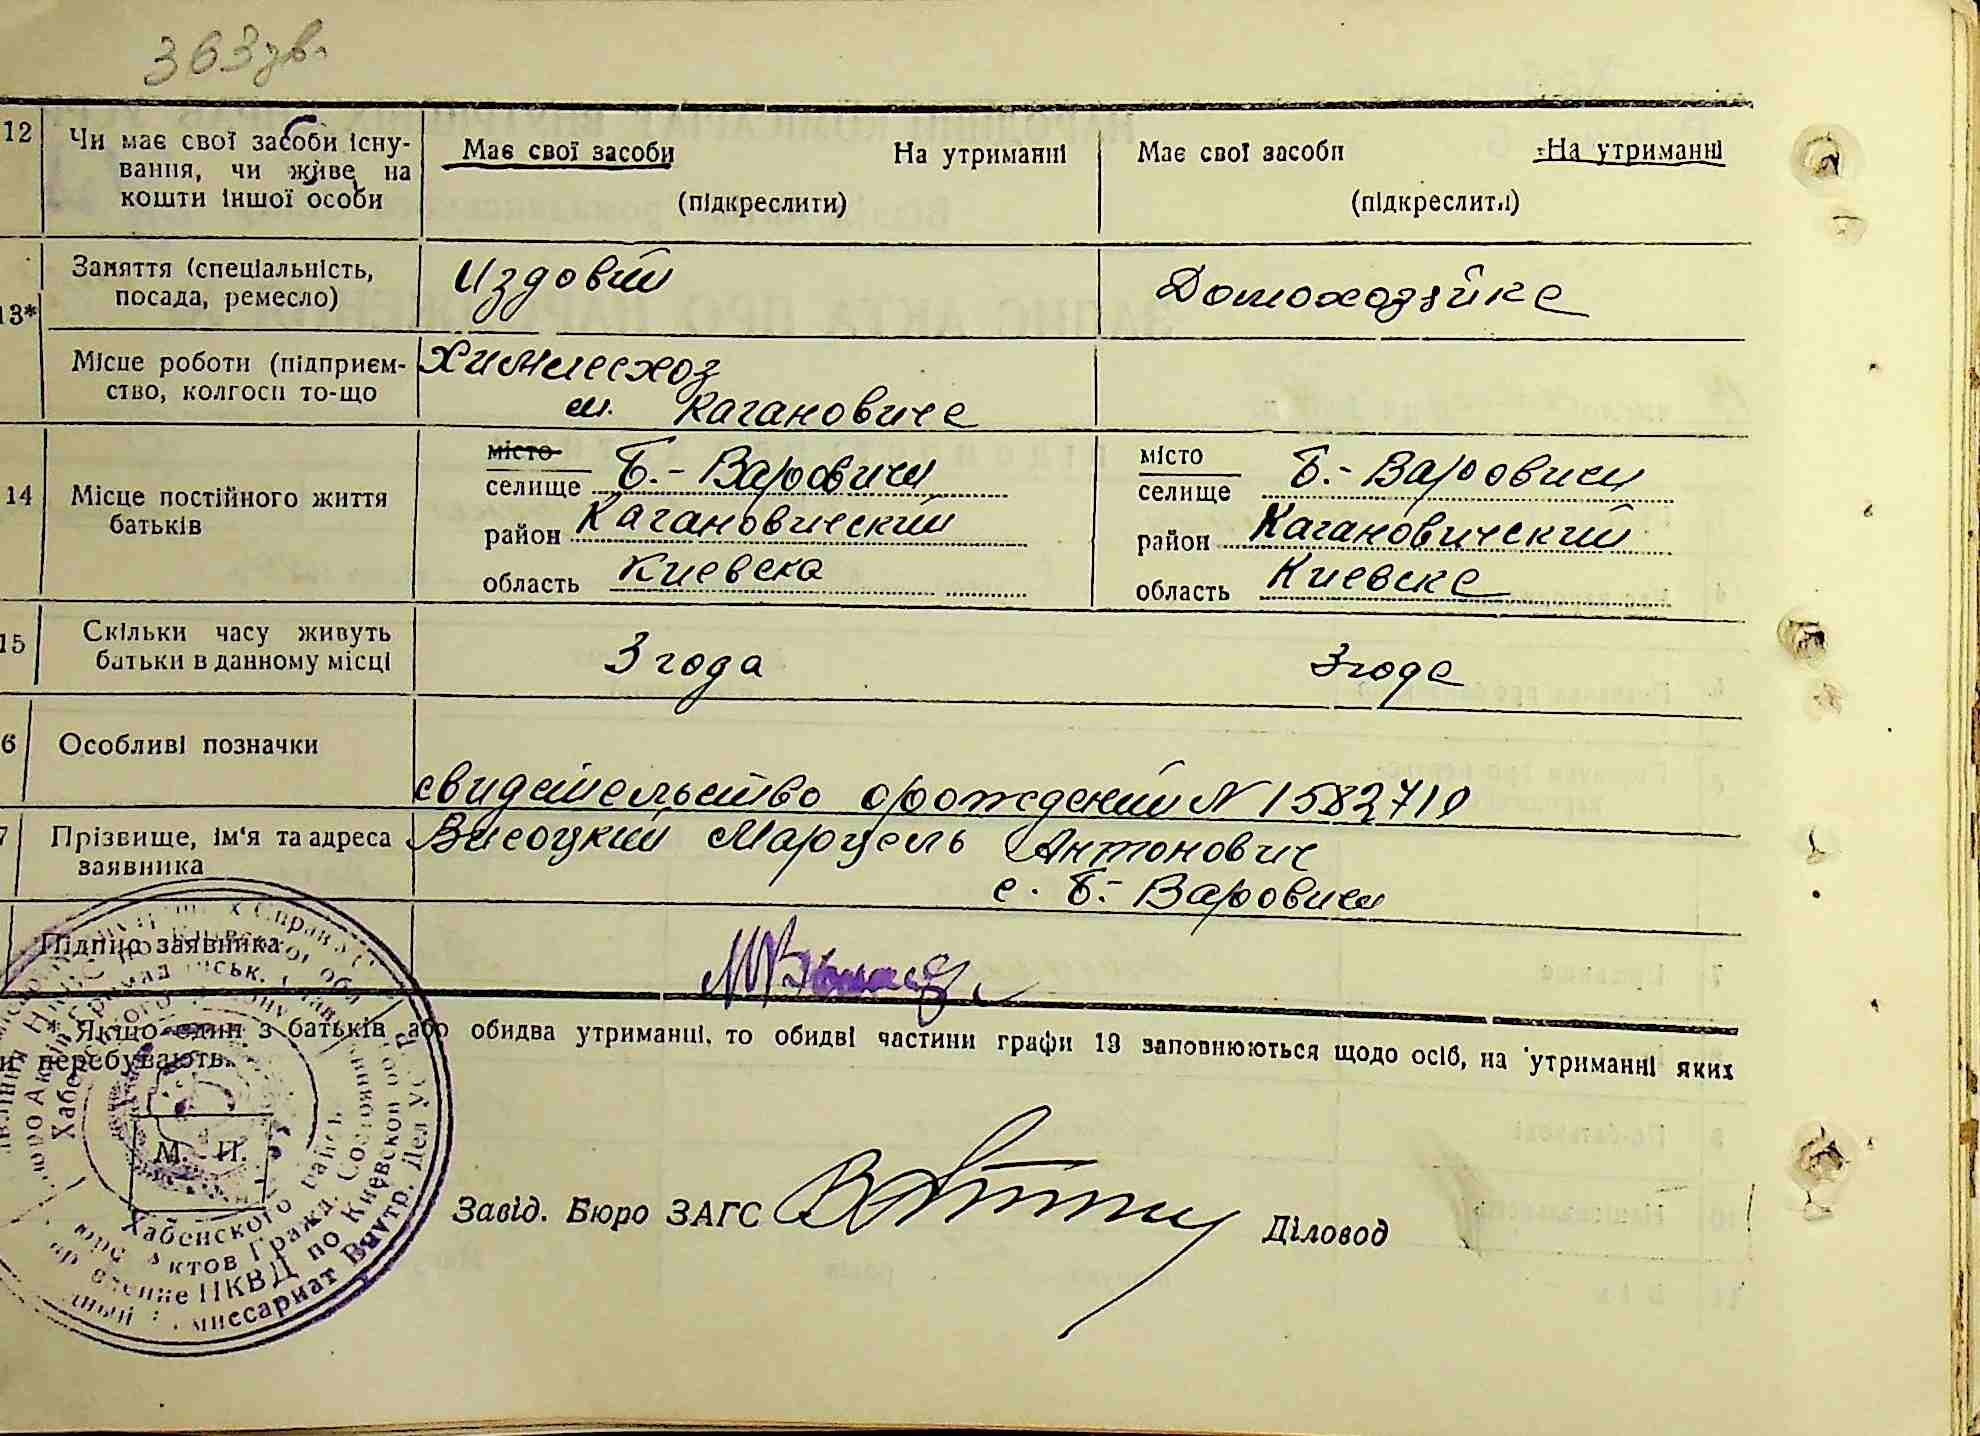 363 зв.
12 Чи має свої засоби існу-
вання, чи живе на
кошти іншої особи
Має свої засоби На утриманні
(підкреслити)
Має свої засоби На утриманні
(підкреслити)
13*
Заняття (спеціальність,
посада, ремесло)
Издовий
Домохозяйка
Місце роботи (підприєм-
ство, колгосп то-що
Химлесхоз
м. Кагановича
14 Місце постійного життя
батьків
місто
селище Б.-Варовичи
район Кагановический
область Киевска
місто
селище Б.-Варовичи
район Кагановический
область Киевска
15 Скільки часу живуть
батьки в данному місці
3 года
3 года
6 Особливі позначки
свидетельство о рождении N 1582710
7 Прізвище, ім'я та адреса
заявника
Висоцкий Марцель Антонович
с. Б-Варовичи
Підпис заявника
* Якщо один з батьків або обидва утриманні, то обидві частини графи 13 заповнюються щодо осіб, на утриманні яких
перебувають.
М. П.
Хабенского
Гражд. Состояния
НКВД по Киевской
Внутр. Дел
Завід. Бюро ЗАГС
Діловод